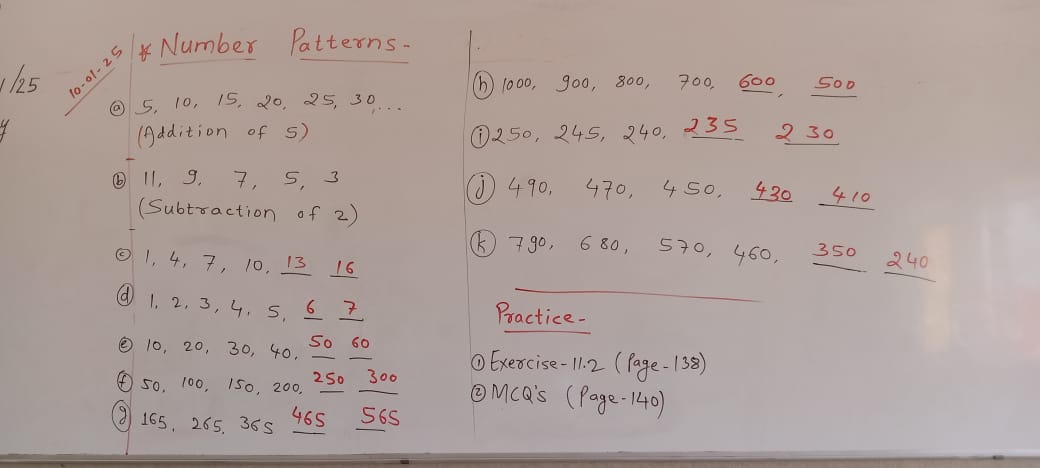 /25
10-01-25
* Number Patterns-
(a) 5, 10, 15, 20, 25, 30,...
(Addition of 5)
(b) 11, 9, 7, 5, 3
(Subtraction of 2)
(c) 1, 4, 7, 10, 13 16
(d) 1, 2, 3, 4, 5, 6 7
(e) 10, 20, 30, 40, 50 60
(f) 50, 100, 150, 200, 250 300
(g) 165, 265, 365 465 565
(h) 1000, 900, 800, 700, 600, 500
(i) 250, 245, 240, 235 230
(j) 490, 470, 450, 430 410
(k) 790, 680, 570, 460, 350 240
Practice-
(1) Exercise-11.2 (Page-138)
(2) MCQ's (Page-140)